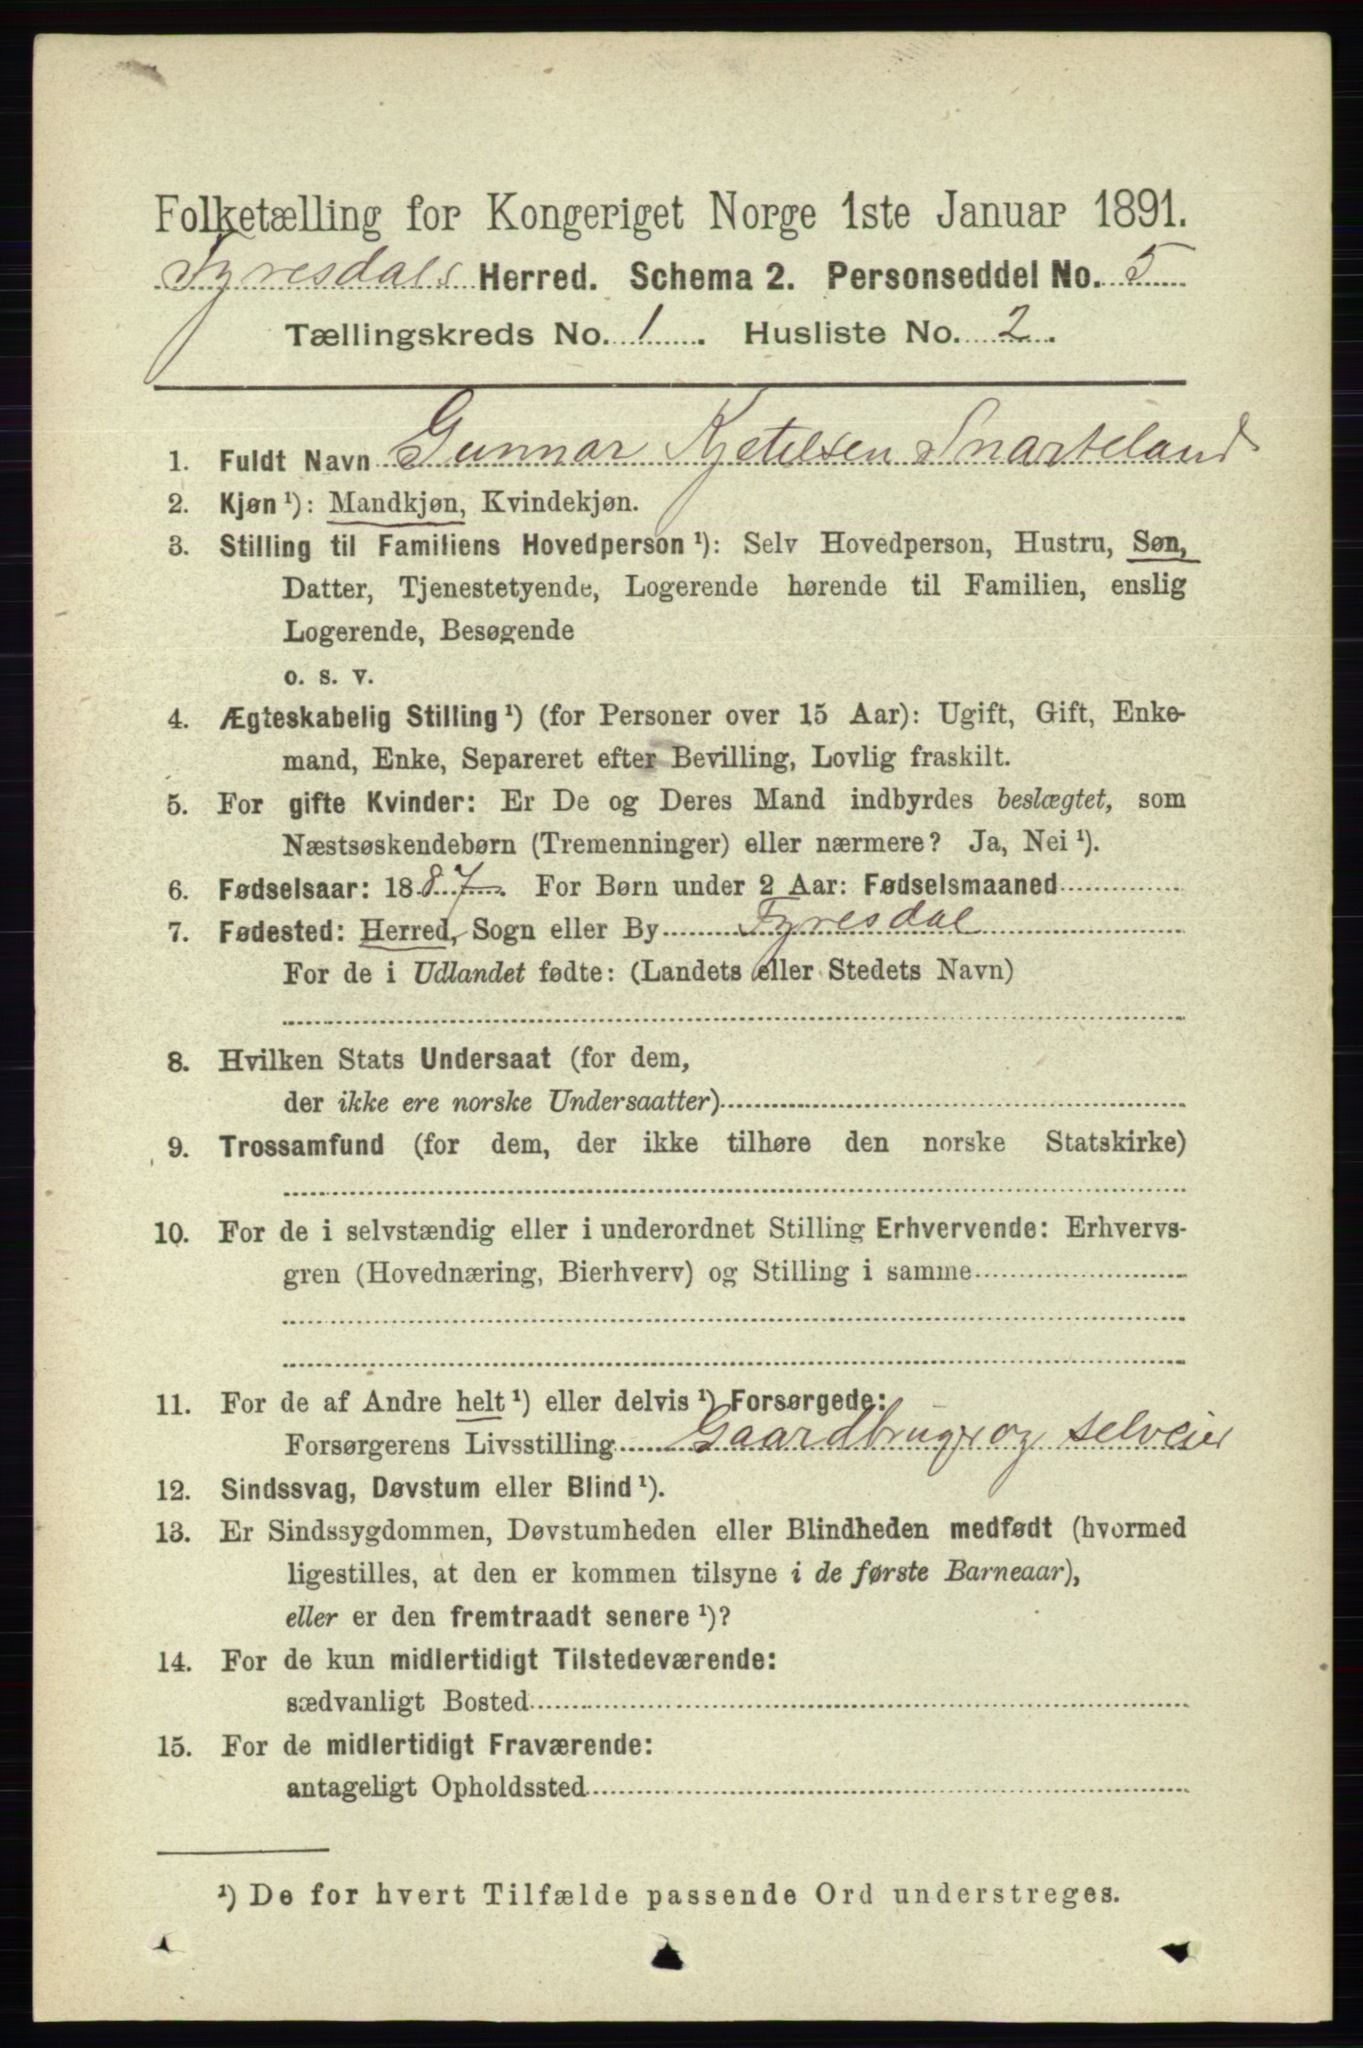 Folketælling for Kongeriget Norge 1ste Januar 1891.
Tyresdals Herred. Schema 2. Personseddel No. 5
Tællingskreds No. 1. Husliste No. 2.
1. Fuldt Navn Gunnar Kjetilsen Snarteland
2. Kjøn ¹): Mandkjøn, Kvindekjøn.
3. Stilling til Familiens Hovedperson ¹): Selv Hovedperson, Hustru, Søn,
Datter, Tjenestetyende, Logerende hørende til Familien, enslig
Logerende, Besøgende
o. s. v.
4. Ægteskabelig Stilling ¹) (for Personer over 15 Aar): Ugift, Gift, Enke-
mand, Enke, Separeret efter Bevilling, Lovlig fraskilt.
5. For gifte Kvinder: Er De og Deres Mand indbyrdes beslægtet, som
Næstsøskendebørn (Tremenninger) eller nærmere? Ja, Nei ¹).
6. Fødselsaar: 1887. For Børn under 2 Aar: Fødselsmaaned
7. Fødested: Herred, Sogn eller By Tyresdal
For de i Udlandet fødte: (Landets eller Stedets Navn)
8. Hvilken Stats Undersaat (for dem,
der ikke ere norske Undersaatter)
9. Trossamfund (for dem, der ikke tilhøre den norske Statskirke)
10. For de i selvstændig eller i underordnet Stilling Erhvervende: Erhvervs-
gren (Hovednæring, Bierhverv) og Stilling i samme
11. For de af Andre helt ¹) eller delvis ¹) Forsørgede:
Forsørgerens Livsstilling Gaardbruger og selveier
12. Sindssvag, Døvstum eller Blind ¹).
13. Er Sindssygdommen, Døvstumheden eller Blindheden medfødt (hvormed
ligestilles, at den er kommen tilsyne i de første Barneaar),
eller er den fremtraadt senere ¹)?
14. For de kun midlertidigt Tilstedeværende:
sædvanligt Bosted
15. For de midlertidigt Fraværende:
antageligt Opholdssted
¹) De for hvert Tilfælde passende Ord understreges.